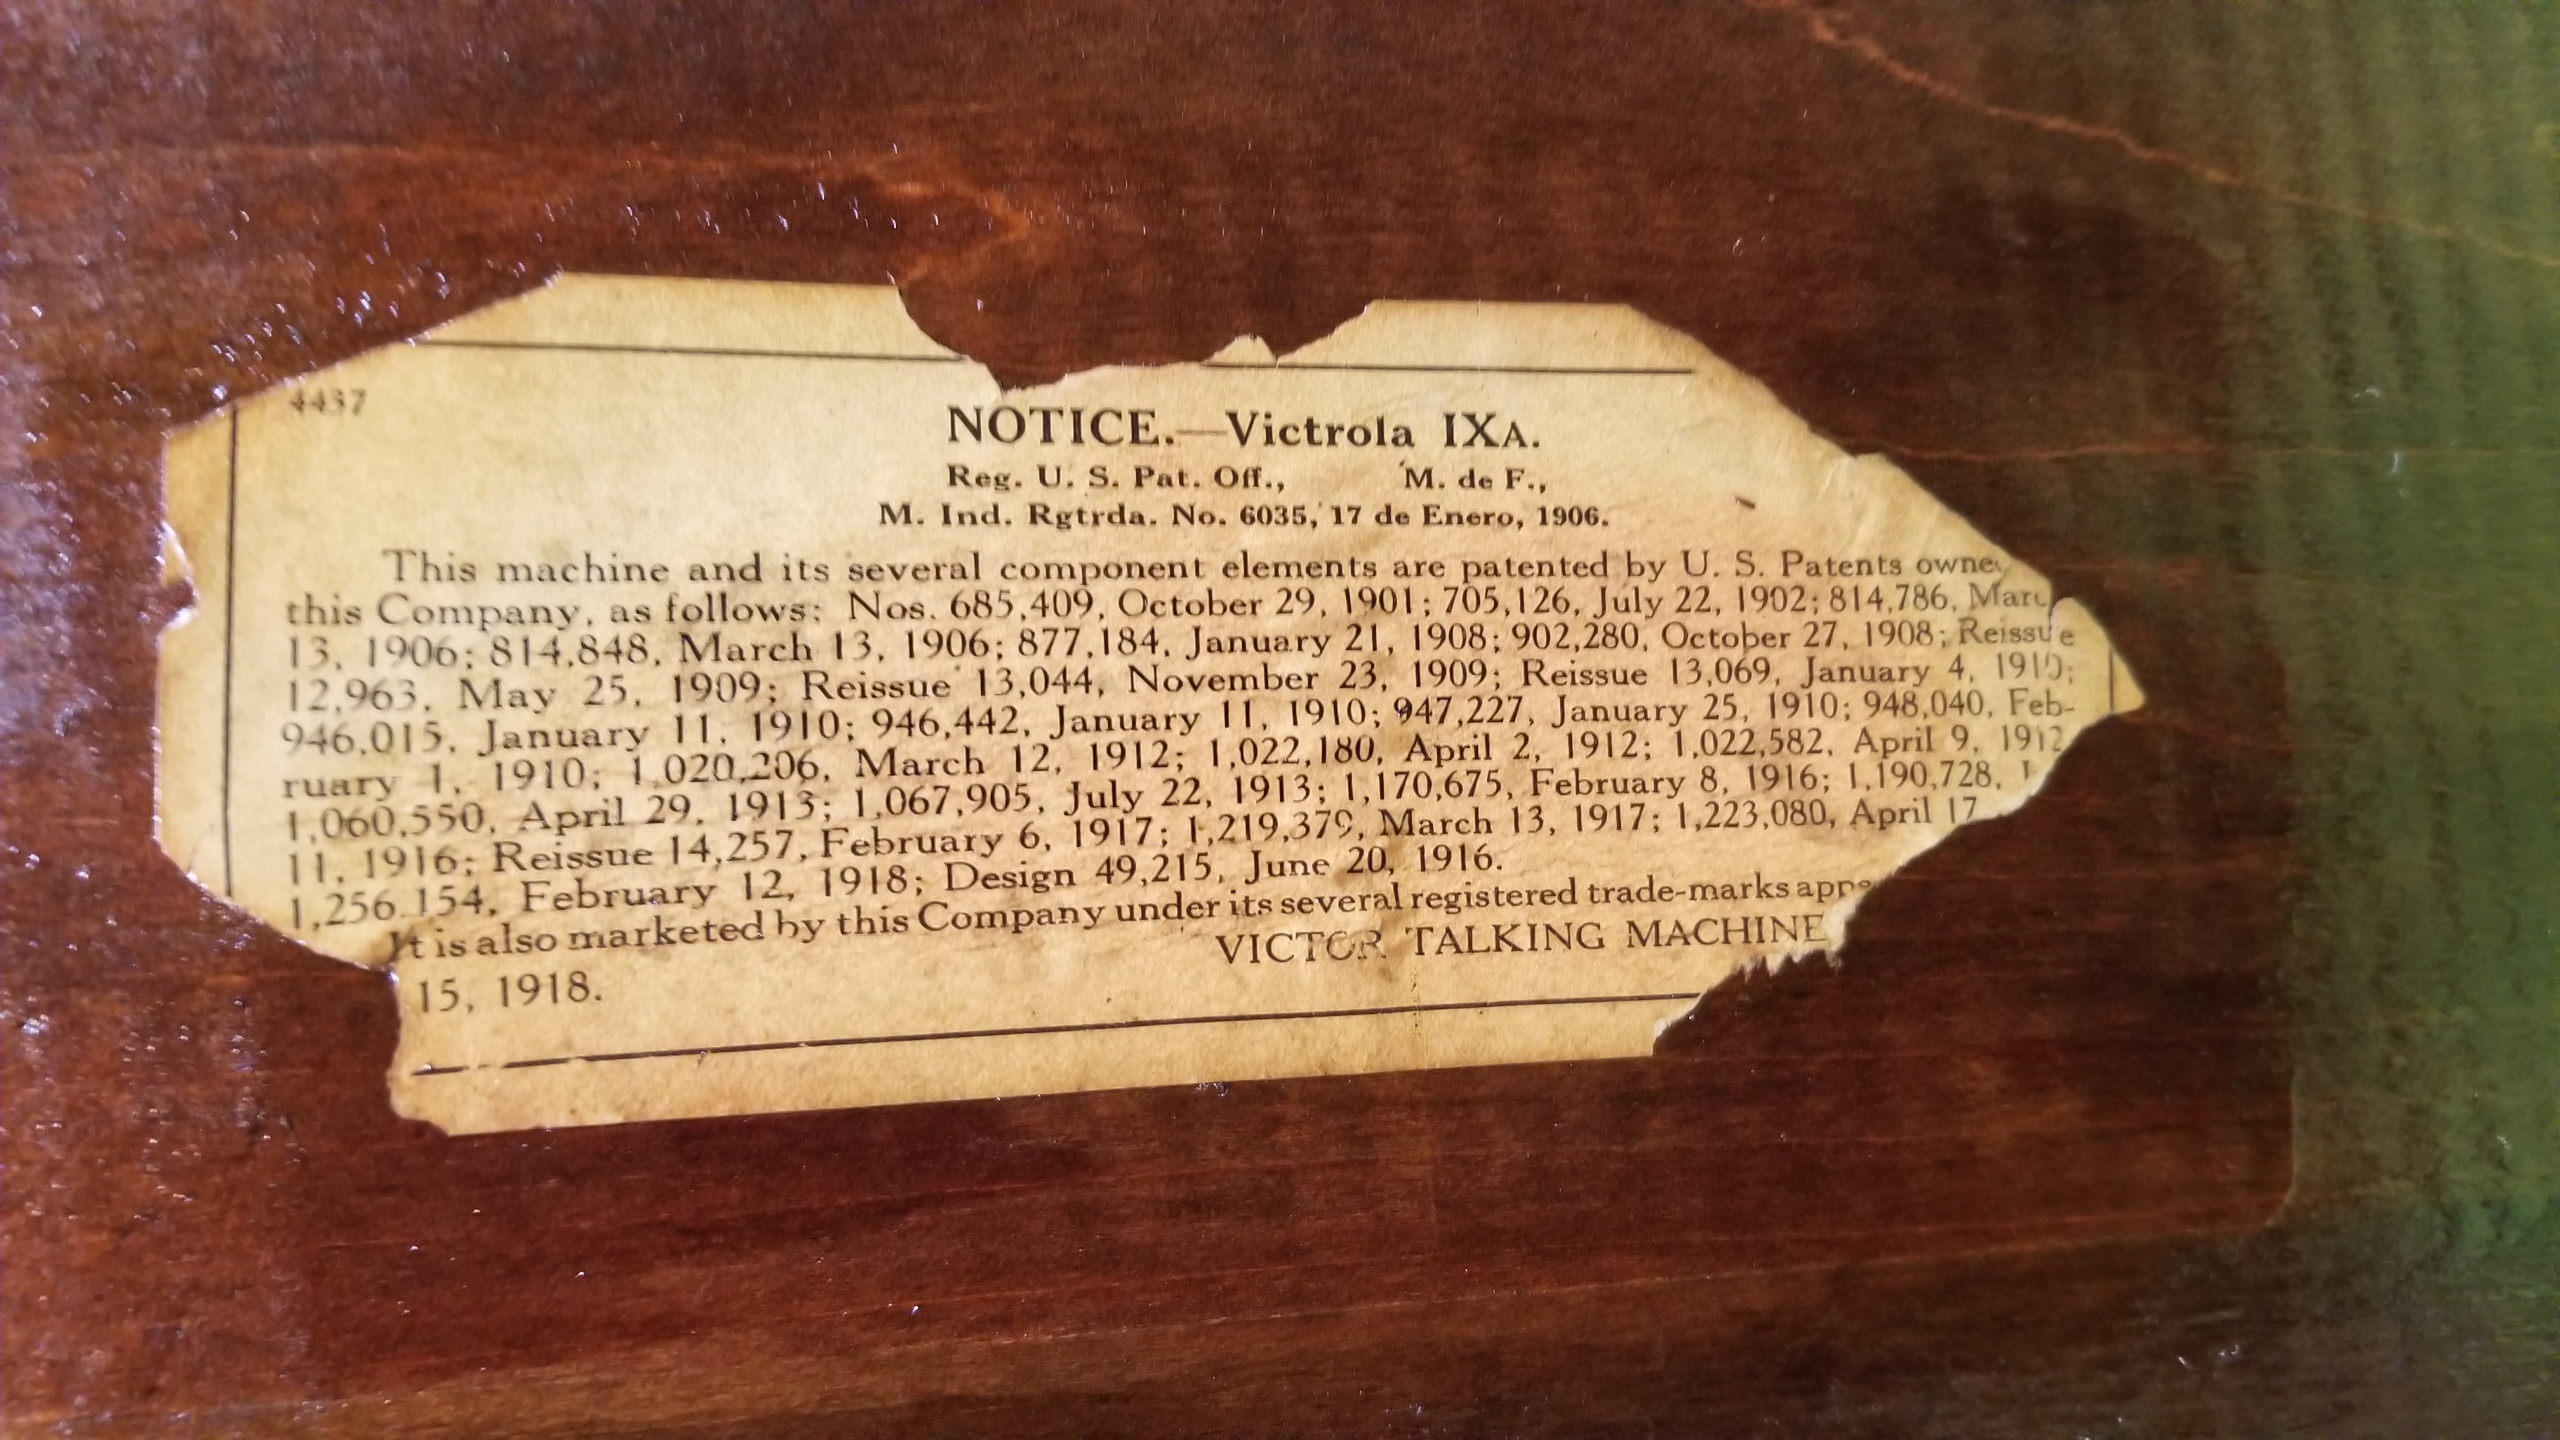 4437
NOTICE.—Victrola IXA.
Reg. U. S. Pat. Off., M. de F.,
M. Ind. Rgtrda. No. 6035, 17 de Enero, 1906.
This machine and its several component elements are patented by U. S. Patents
this Company, as follows: Nos. 685,409, October 29, 1901; 705,126, July 22, 1902; 814,786,
13, 1906; 814,848, March 13, 1906; 877,184, January 21, 1908; 902,280, October 27, 1908; Reissue
12,963, May 25, 1909; Reissue 13,044, November 23, 1909; Reissue 13,069, January 4, 1910;
946,015, January 11, 1910; 946,442, January 11, 1910; 947,227, January 25, 1910; 948,040, Feb-
ruary 1, 1910; 1,020,206, March 12, 1912; 1,022,180, April 2, 1912; 1,022,582, April 9, 1912
1,060,550, April 29, 1913; 1,067,905, July 22, 1913; 1,170,675, February 8, 1916; 1,190,728,
11, 1916; Reissue 14,257, February 6, 1917; 1,219,379, March 13, 1917; 1,223,080, April 17
1,256,154, February 12, 1918; Design 49,215, June 20, 1916.
It is also marketed by this Company under its several registered trade-marks
VICTOR TALKING MACHINE
15, 1918.